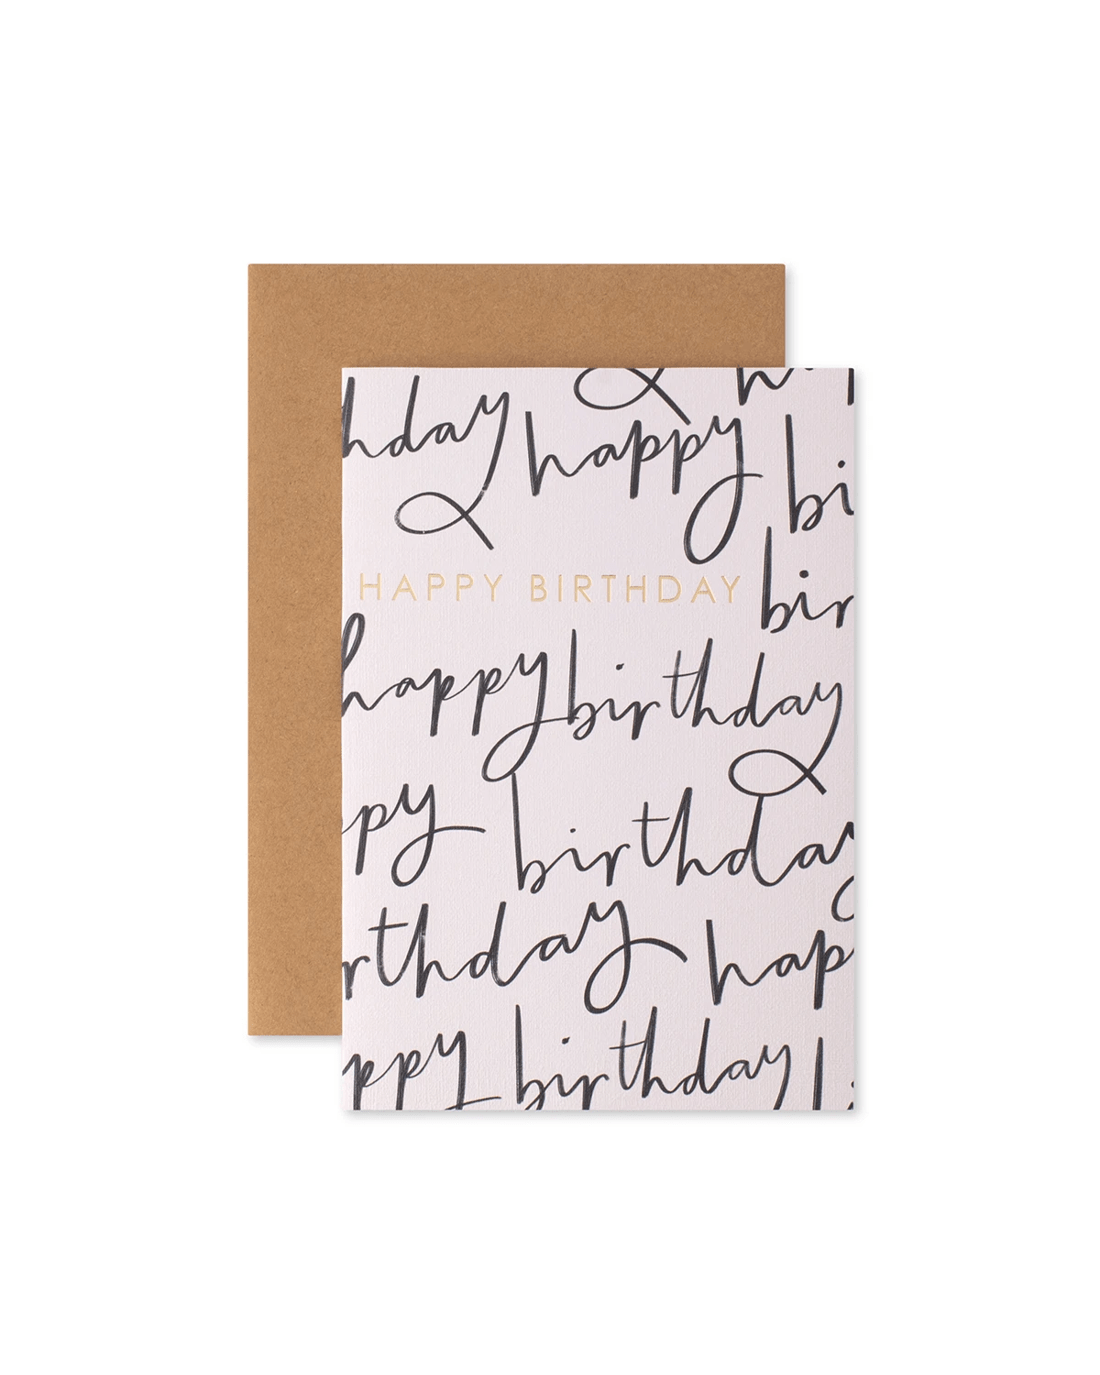 hday happy bi
HAPPY BIRTHDAY
bir
happy birthday
ppy birthday
rthday hap
ppy birthday